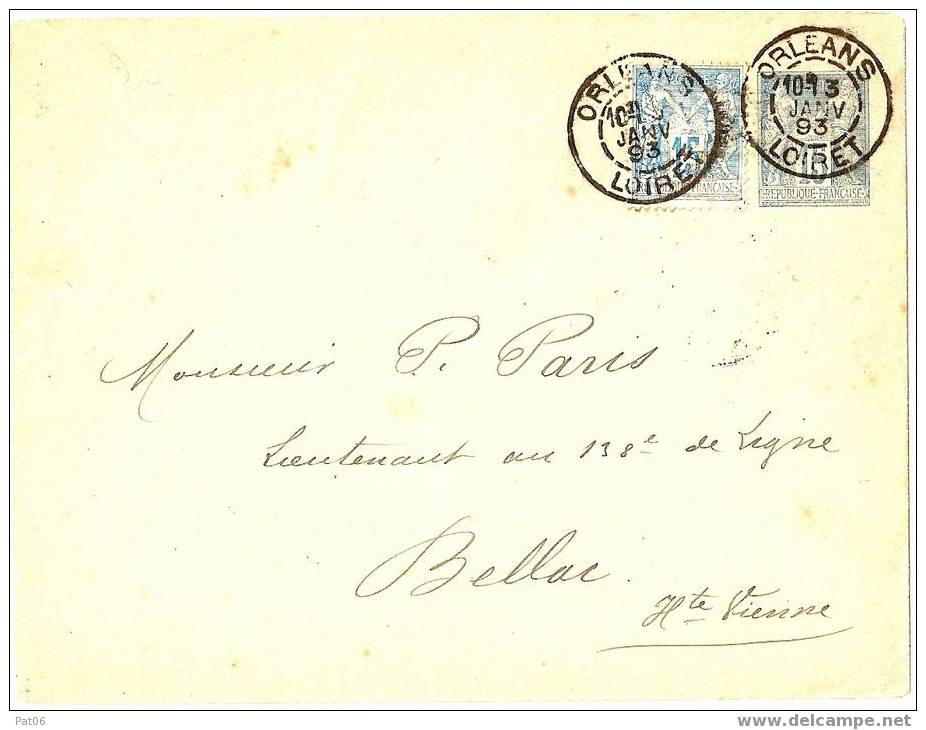 ORLEANS
JANV
93
LOIRET
15
FRANÇAISE
ORLEANS
JANV
93
LOIRET
15
REPUBLIQUE FRANÇAISE
Monsieur P. Paris
Lieutenant au 138e de Ligne
Bellac.
Hte Vienne
Pat06
www.delcampe.net